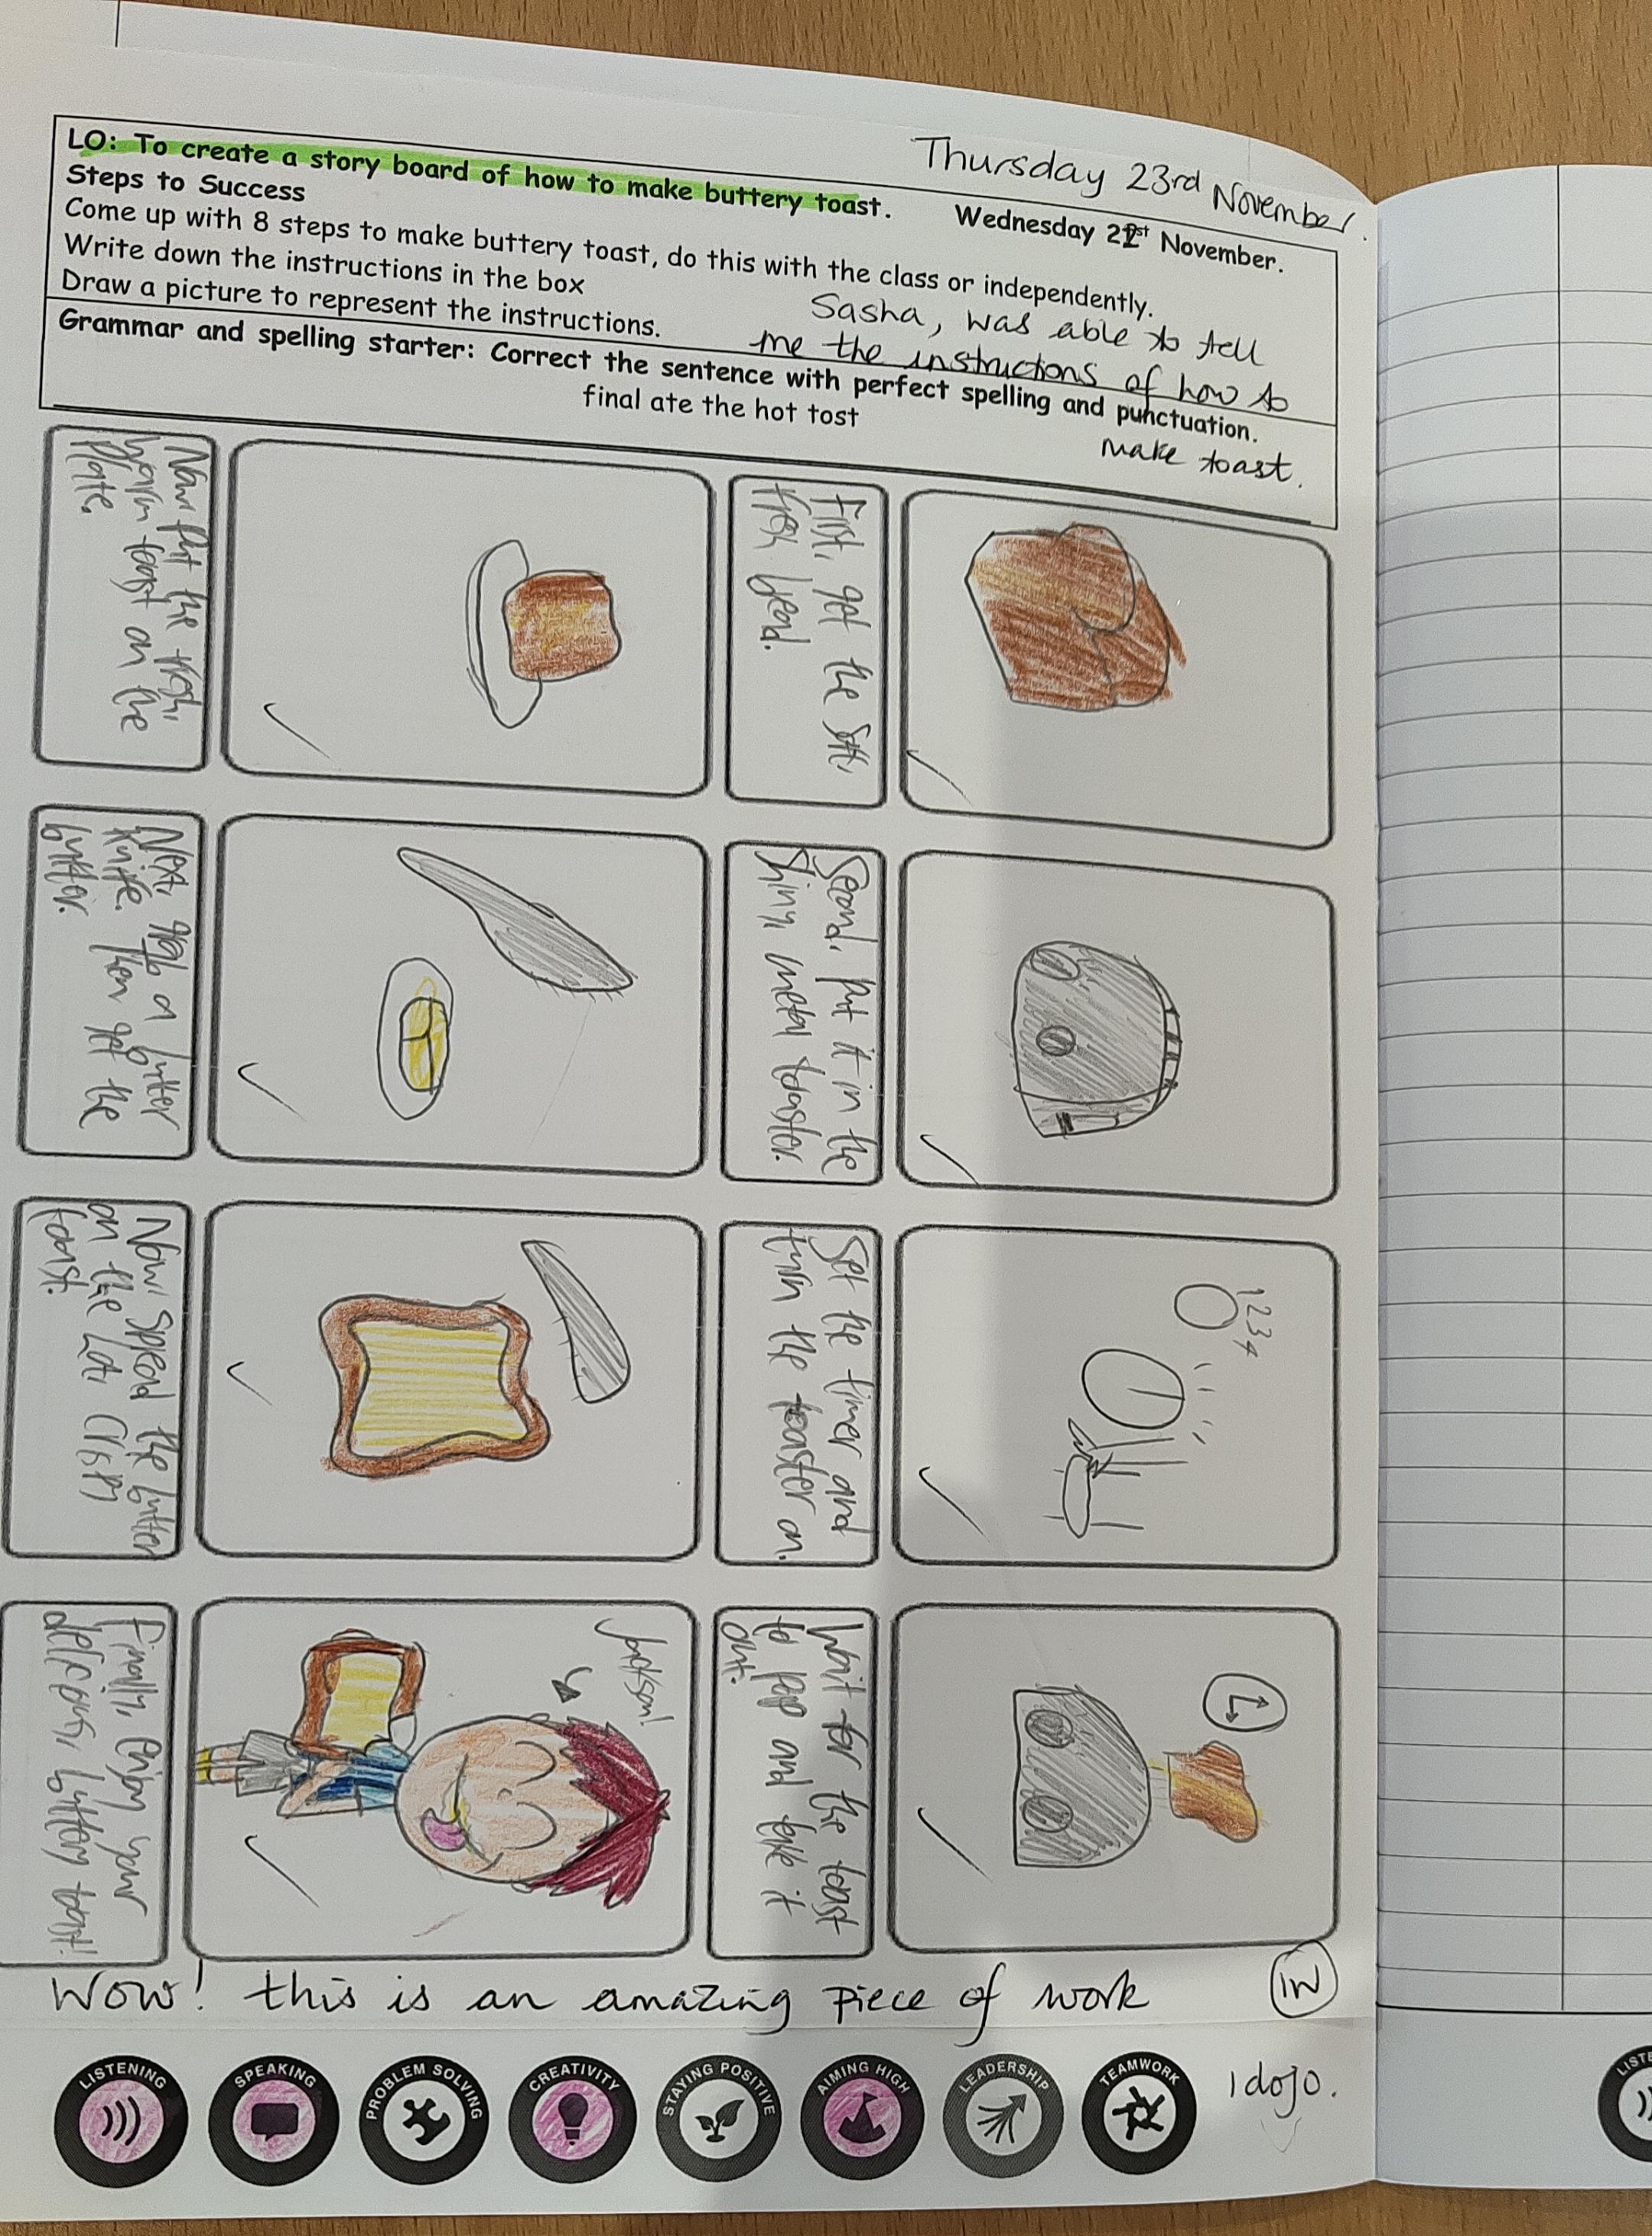 Thursday 23rd November.
LO: To create a story board of how to make buttery toast.
Wednesday 22st November.
Steps to Success
Come up with 8 steps to make buttery toast, do this with the class or independently.
Write down the instructions in the box
Draw a picture to represent the instructions.
Sasha, was able to tell
me the instructions of how to
make toast.
Grammar and spelling starter: Correct the sentence with perfect spelling and punctuation.
final ate the hot tost
First, get the soft,
fresh bread.
Second, put it in the
shiny, metal toaster.
Set the timer and
turn the toaster on.
1 2 3 4
Wait for the toast
to pop and take it
out.
Now put the fresh,
warm toast on the
plate.
Next, grab a butter
knife. Then get the
butter.
Now, spread the butter
on the hot, crispy
toast.
Finally, enjoy your
delicous, buttery toast!
Jackson!
Wow! this is an amazing piece of work
IW
LISTENING
SPEAKING
PROBLEM SOLVING
CREATIVITY
STAYING POSITIVE
AIMING HIGH
LEADERSHIP
TEAMWORK
1 dojo.